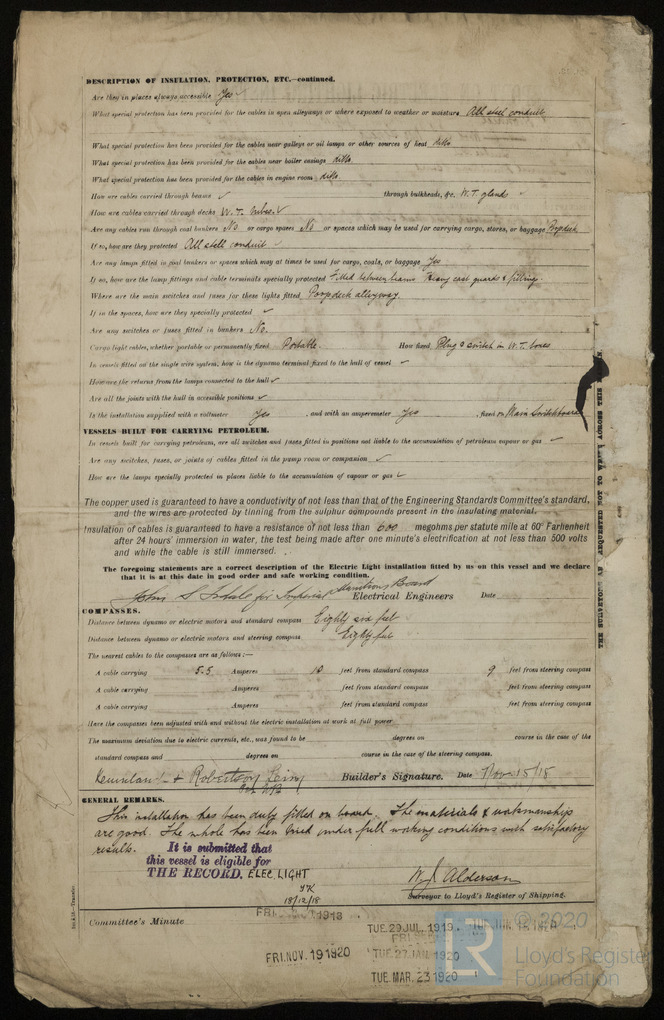 DESCRIPTION OF INSULATION, PROTECTION, ETC.—continued.
Are they in places always accessible Yes ✓
What special protection has been provided for the cables in open alleyways or where exposed to weather or moisture All steel conduit
What special protection has been provided for the cables near galleys or oil lamps or other sources of heat ditto
What special protection has been provided for the cables near boiler casings ditto.
What special protection has been provided for the cables in engine room ditto
How are cables carried through beams ✓ through bulkheads, &c. W.T. glands ✓
How are cables carried through decks W.T. tubes. ✓
Are any cables run through coal bunkers No or cargo spaces No or spaces which may be used for carrying cargo, stores, or baggage Poopdeck
If so, how are they protected All stell conduit ✓
Are any lamps fitted in coal bunkers or spaces which may at times be used for cargo, coals, or baggage Yes
If so, how are the lamp fittings and cable terminals specially protected Fitted between beams Heavy cast guards & fittings.
Where are the main switches and fuses for these lights fitted Poopdeck alleyway.
If in the spaces, how are they specially protected ✓
Are any switches or fuses fitted in bunkers No.
Cargo light cables, whether portable or permanently fixed Portable. How fixed Plug & switch in W.T. boxes
In vessels fitted on the single wire system, how is the dynamo terminal fixed to the hull of vessel ✓
How are the returns from the lamps connected to the hull ✓
Are all the joints with the hull in accessible positions ✓
Is the installation supplied with a voltmeter Yes , and with an amperemeter Yes , fixed on Main Switchboard
VESSELS BUILT FOR CARRYING PETROLEUM.
In vessels built for carrying petroleum, are all switches and fuses fitted in positions not liable to the accumulation of petroleum vapour or gas ✓
Are any switches, fuses, or joints of cables fitted in the pump room or companion ✓
How are the lamps specially protected in places liable to the accumulation of vapour or gas ✓
The copper used is guaranteed to have a conductivity of not less than that of the Engineering Standards Committee's standard,
and the wires are protected by tinning from the sulphur compounds present in the insulating material.
Insulation of cables is guaranteed to have a resistance of not less than 600 megohms per statute mile at 60° Farhenheit
after 24 hours' immersion in water, the test being made after one minute's electrification at not less than 500 volts
and while the cable is still immersed.
The foregoing statements are a correct description of the Electric Light installation fitted by us on this vessel and we declare
that it is at this date in good order and safe working condition.
for Imperial Munitions Board Electrical Engineers Date
COMPASSES.
Distance between dynamo or electric motors and standard compass Eighty six feet
Distance between dynamo or electric motors and steering compass Eighty feet
The nearest cables to the compasses are as follows:—
A cable carrying 5.5 Amperes 10 feet from standard compass 9 feet from steering compass
A cable carrying Amperes feet from standard compass feet from steering compass
A cable carrying Amperes feet from standard compass feet from steering compass
Have the compasses been adjusted with and without the electric installation at work at full power
The maximum deviation due to electric currents, etc., was found to be degrees on course in the case of the
standard compass and degrees on course in the case of the steering compass.
Robertson Builder's Signature. Date Nov. 15/18
GENERAL REMARKS.
This installation has been duly fitted on board. The materials & workmanship
are good. The whole has been tried under full working conditions with satisfactory
results.
It is submitted that
this vessel is eligible for
THE RECORD. ELEC LIGHT
18/12/18
W. J. Alderson
Surveyor to Lloyd's Register of Shipping.
Committee's Minute
TUE. 29 JUL. 1919.
FRI. NOV. 19 1920
TUE. 27 JAN. 1920
TUE. MAR. 23 1920
LR
© 2020
Lloyd's Register
Foundation